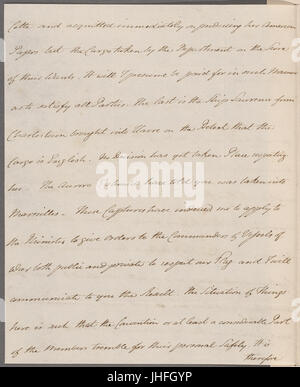 Cette and acquitted immediately on producing her American
Papers but the Cargo taken by the Department in the Name
of their Wants. It will I presume be paid for in such Manner
as to satisfy all Parties. the last is the Ship Laurens from
Charlestown brought into Havre on the Pretext that the
Cargo is English. No Decision has yet taken Place respecting
her. The Aurora I have told you was taken into
Marseilles. These Captures have induced me to apply to
the Minister to give orders to the Commanders of Vessels of
War both public and private to respect our Flag and I will
communicate to you the Result. the Situation of Things
here is such that the Convention or at least a considerable Part
of the Members tremble for their personal Safety. It is
therefore
alamy
Image ID: JHFGYP
www.alamy.com